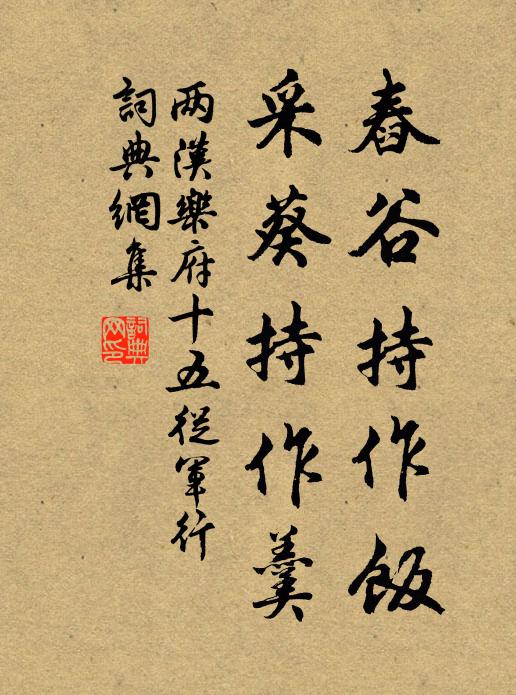 舂谷持作飯
采葵持作羹
两漢樂府十五從軍行
詞典網集
詞典
网印